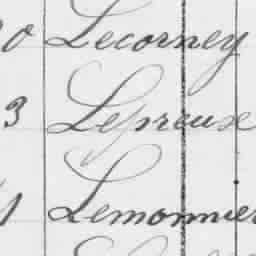 Lecorney
3 Lepreux
Lemonnier